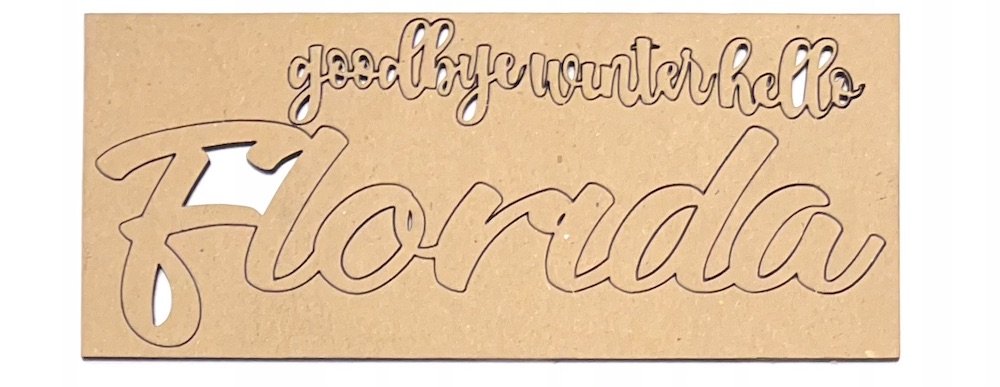 goodbye winter hello
Florida